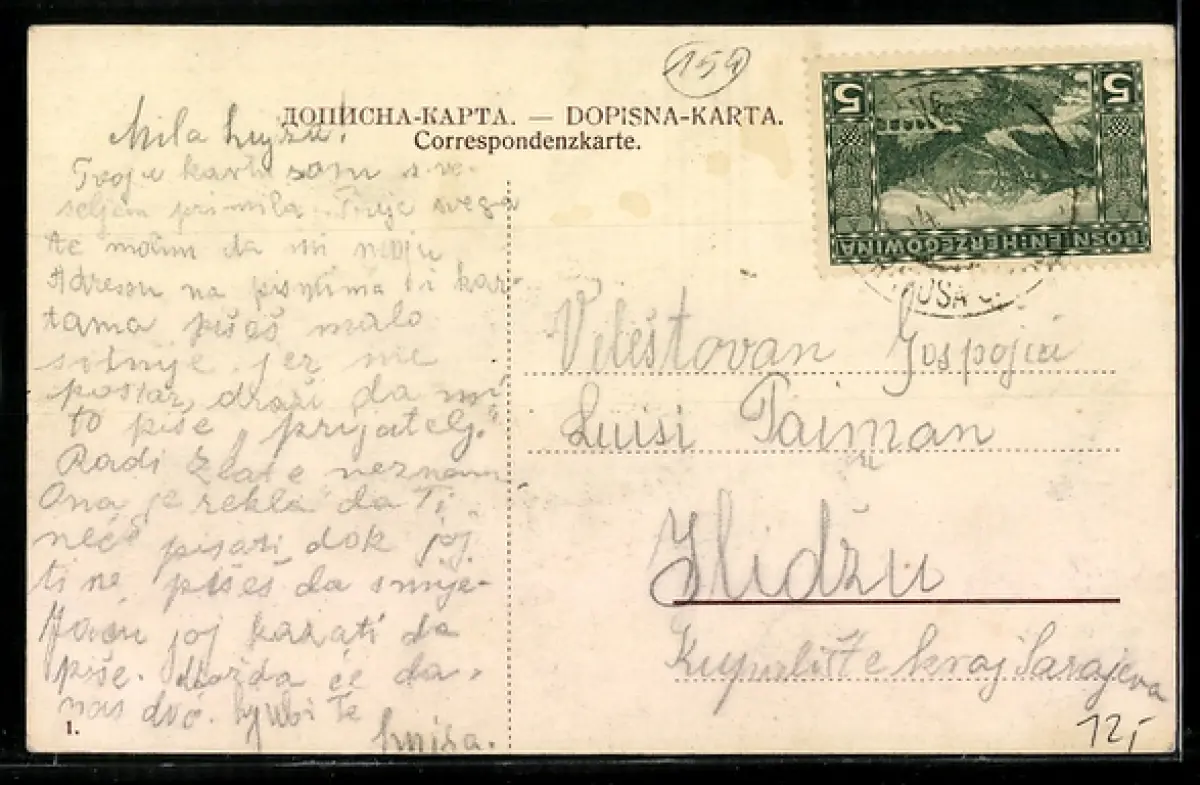 159
ДОПИСНА-КАРТА. — DOPISNA-KARTA.
Correspondenzkarte.
5 5
BOSNIEN-HERZEGOWINA
Mila
Tvoju kartu sam s ve-
seljem primila. Prije svega
te molim da mi
Adresu na pismima i kar-
tama pišeš malo
sitnije jer me
da mi
to piše „prijatelj."
Radi Zlate neznam
Ona je rekla da Ti
neće pisati dok joj
ti ne pišeš da smije-
joj kazati da
piše. Možda će da-
nas doć. Ljubi Te
Luisa.
1.
Veleštovan Gospojici
Luisi Paiman
Ilidžu
Kupalište kraj Sarajeva
12,-